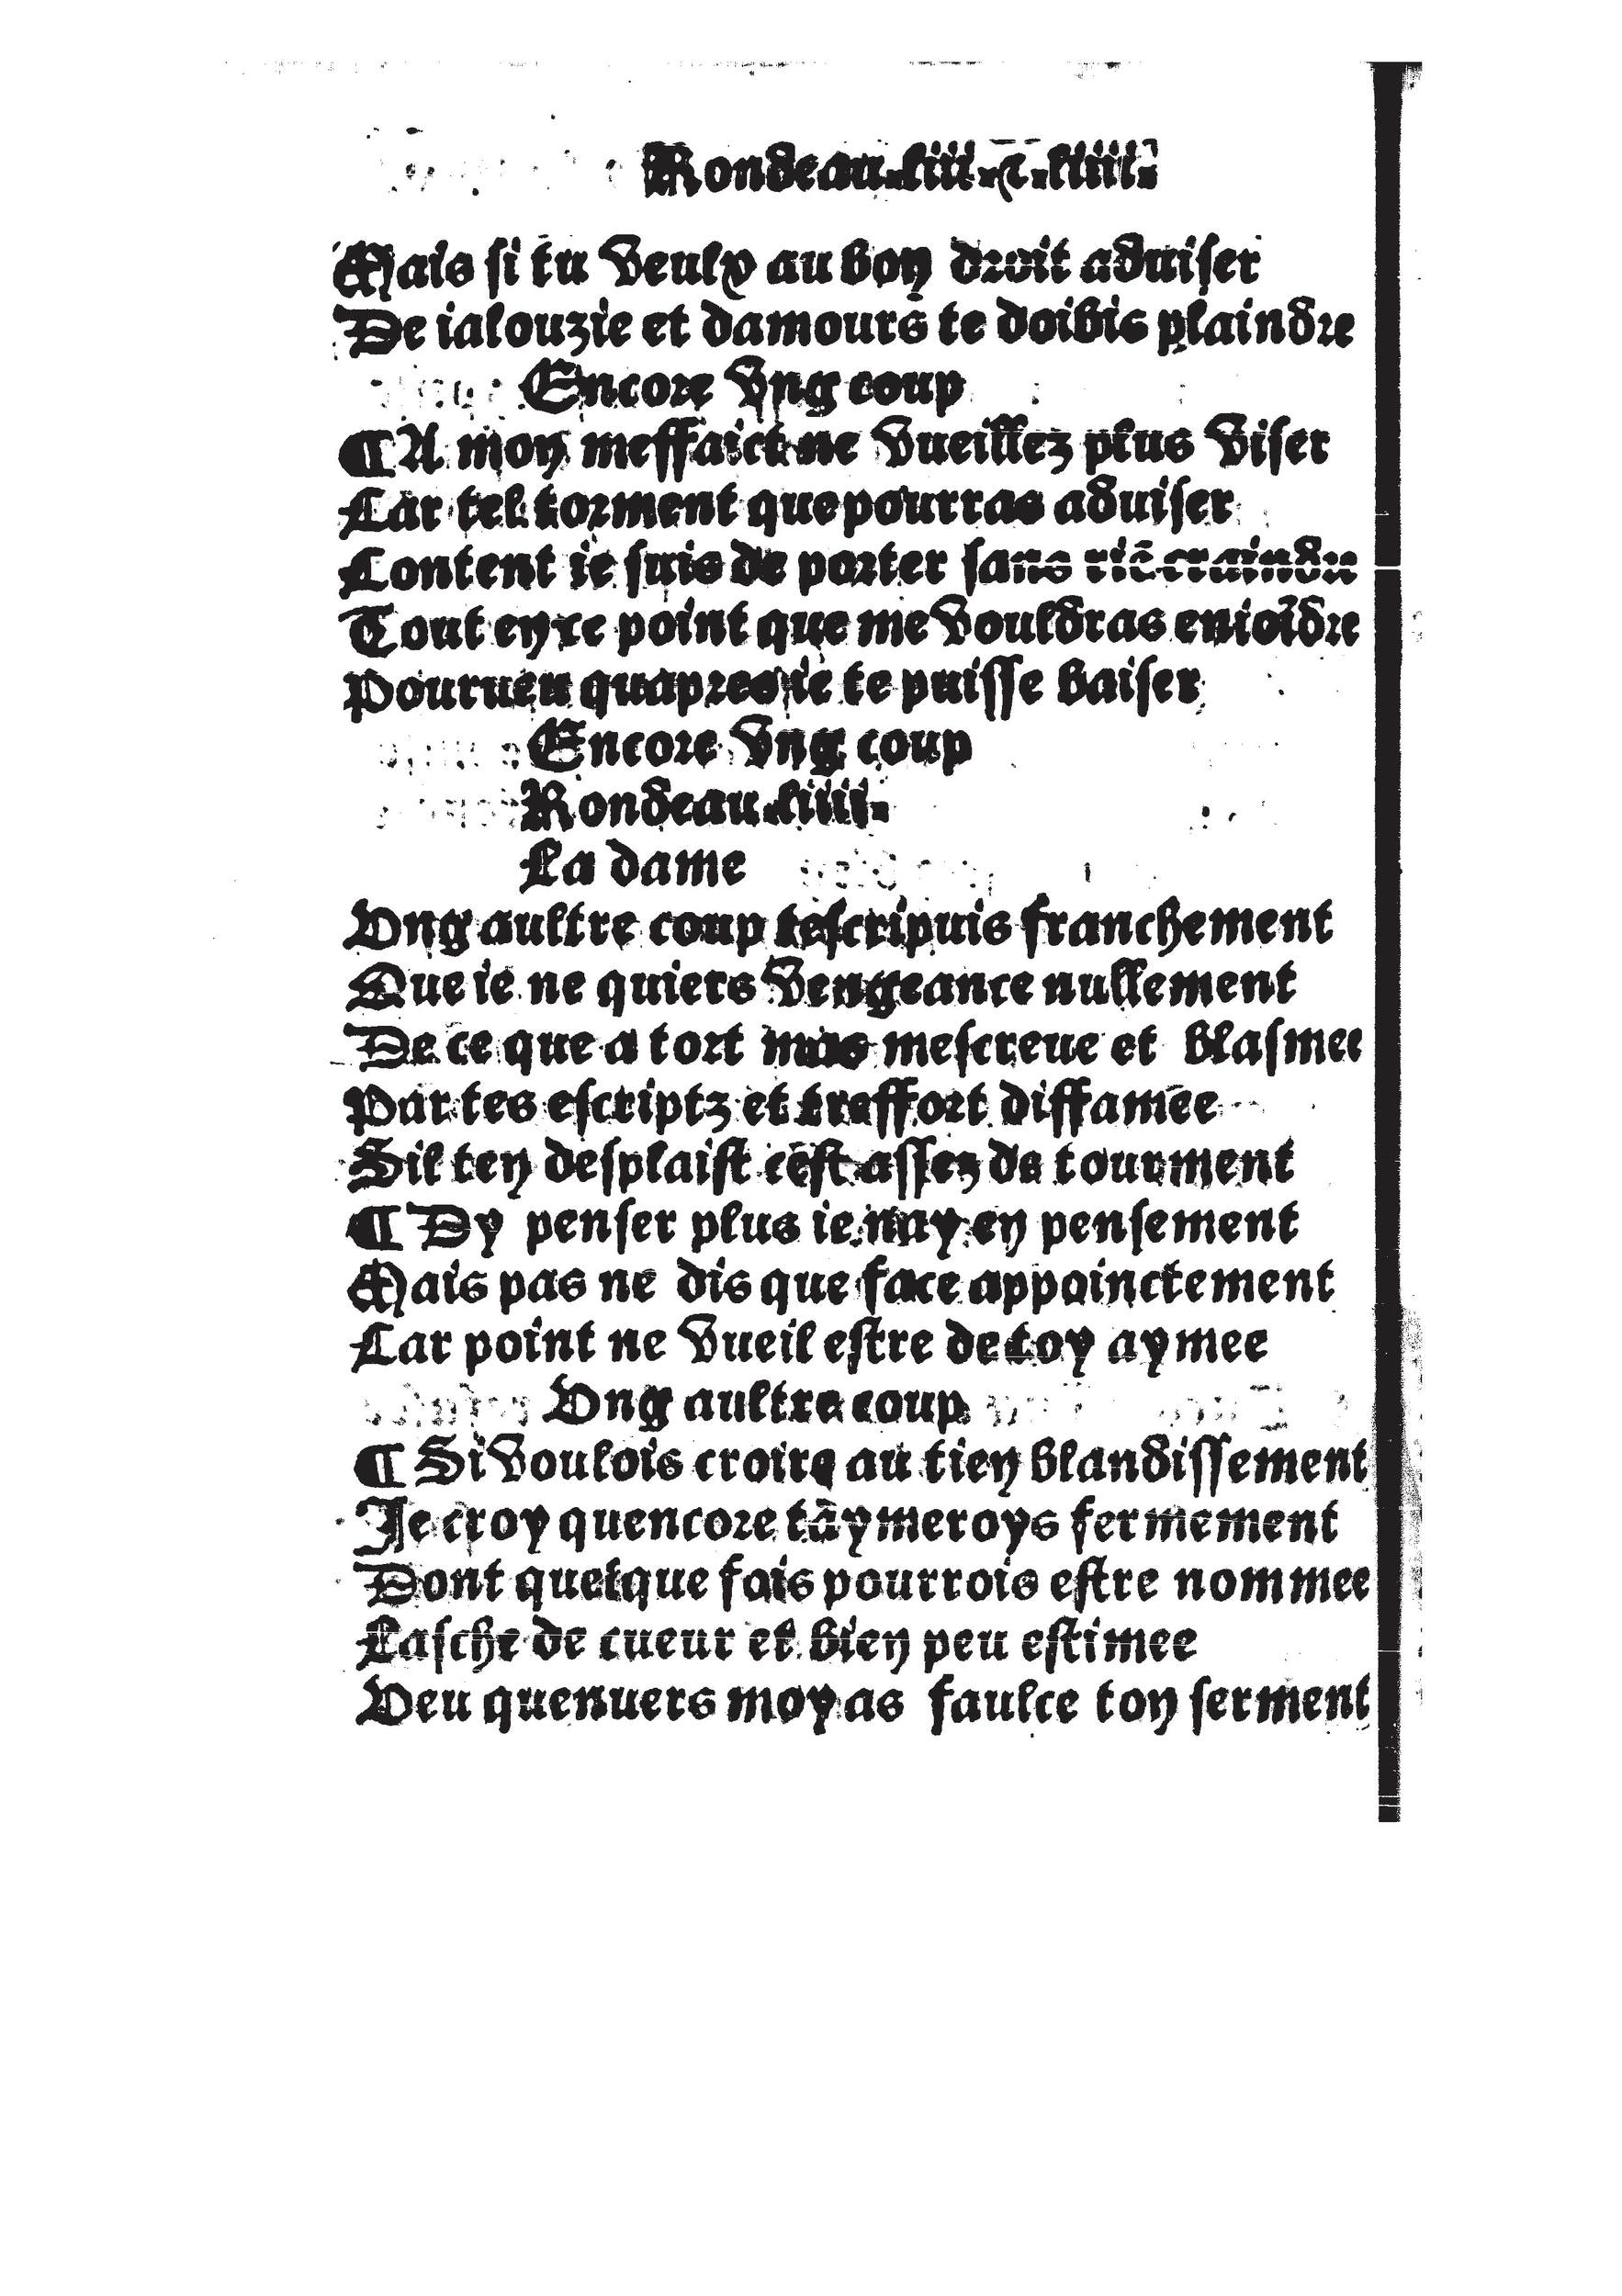 Rondeau.liii.⁊.liiii.
Mais si tu veulx au bon droit aduiser
De ialouzie et damours te doibis plaindre
Encore vng coup
¶ A mon meffaict ne vueillez plus viser
Car tel torment que pourras aduiser
Content ie suis de porter sans riē craindre
Tout en ce point que me vouldras enioīdre
Pourueu quapres ie te puisse baiser
Encore vng coup
Rondeau.liiii.
La dame
Vng aultre coup tescripuis franchement
Que ie ne quiers vengeance nullement
De ce que a tort mas mescreue et blasmee
Par tes escriptz et treffort diffamee
Sil ten desplaist cest assez de tourment
¶ Dy penser plus ie nay en pensement
Mais pas ne dis que face appoinctement
Car point ne vueil estre de toy aymee
Vng aultre coup
¶ Si voulois croire au tien blandissement
Je croy quencore taymeroys fermement
Dont quelque fois pourrois estre nommee
Lasche de cueur et bien peu estimee
Veu quenuers moy as faulce ton serment